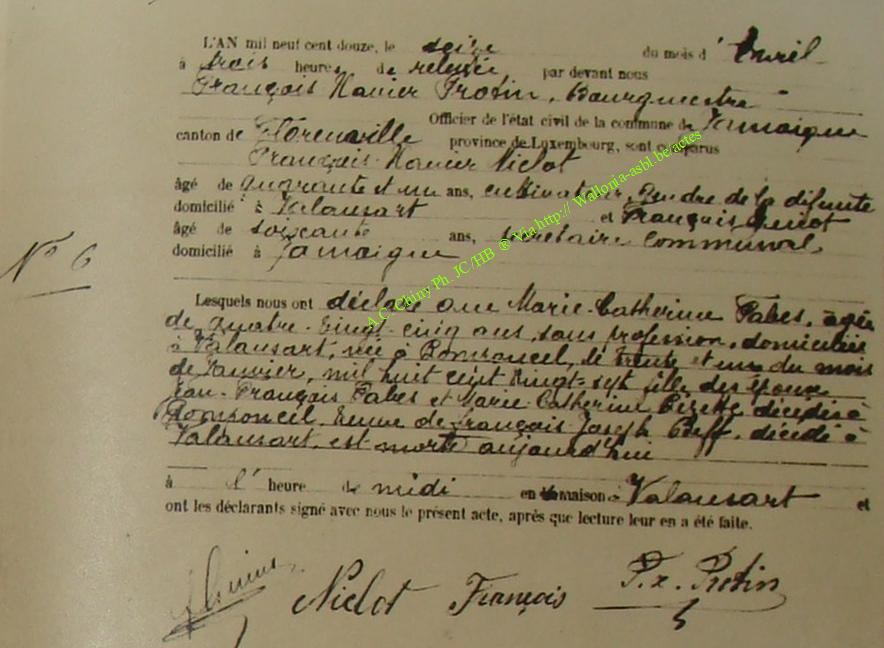 L'AN mil neuf cent douze, le seize du mois d'Avril
à trois heures de relevée par devant nous
François Xavier Protin, Bourgmestre
Officier de l'état civil de la commune de Jamoigne
canton de Florenville province de Luxembourg, sont comparus
François Xavier Niclot
âgé de quarante et un ans, cultivateur, gendre de la défunte
domicilié à Valansart et François
âgé de soixante ans, secrétaire communal
domicilié à Jamoigne
N° 6
Lesquels nous ont déclaré que Marie-Catherine Fabes, âgée
de quatre-vingt-cinq ans, sans profession, domiciliée
à Valansart, née à le trente et un du mois
de Janvier, mil huit cent vingt-sept fille des époux
Jean-François Fabes et Marie-Catherine décédés à
veuve de François Joseph décédé à
Valansart, est morte aujourd'hui
à l'heure de midi en maison à Valansart et
ont les déclarants signé avec nous le présent acte, après que lecture leur en a été faite.
Niclot François F. x. Protin
A.C. Chiny Ph. JC/HB ® Via http://Wallonia-asbl.be/actes